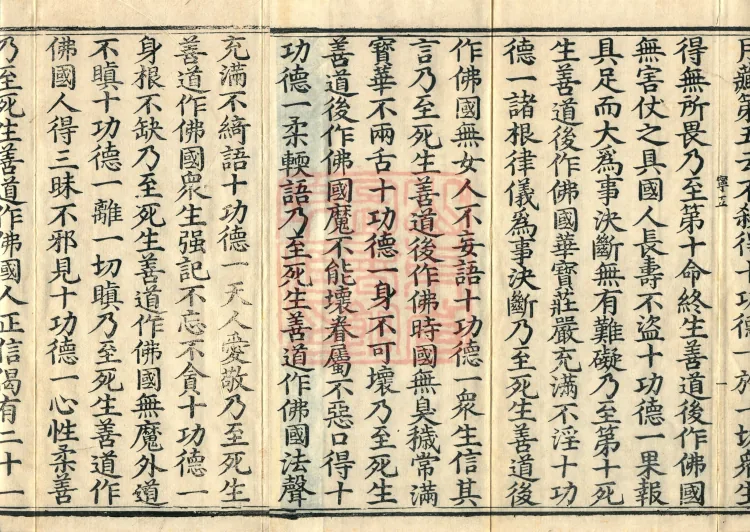 月藏第五云不殺得十功德一於一切眾生
得無所畏乃至第十命終生善道後作佛國
無害仗之具國人長壽不盜十功德一果報
具足而大為事決斷無有難礙乃至第十死
生善道後作佛國華寶莊嚴充滿不淫十功
德一諸根律儀為事決斷乃至死生善道後
作佛國無女人不妄語十功德一衆生信其
言乃至死生善道後作佛時國無臭穢常滿
寶華不兩舌十功德一身不可壞乃至死生
善道後作佛國魔不能壞眷屬不惡口得十
功德一柔輭語乃至死生善道作佛國法聲
充滿不綺語十功德一天人愛敬乃至死生
善道作佛國衆生强記不忘不貪十功德一
身根不缺乃至死生善道作佛國無魔外道
不瞋十功德一離一切瞋乃至死生善道作
佛國人得三昧不邪見十功德一心性柔善
乃至死生善道作佛國人正信偈有二十一